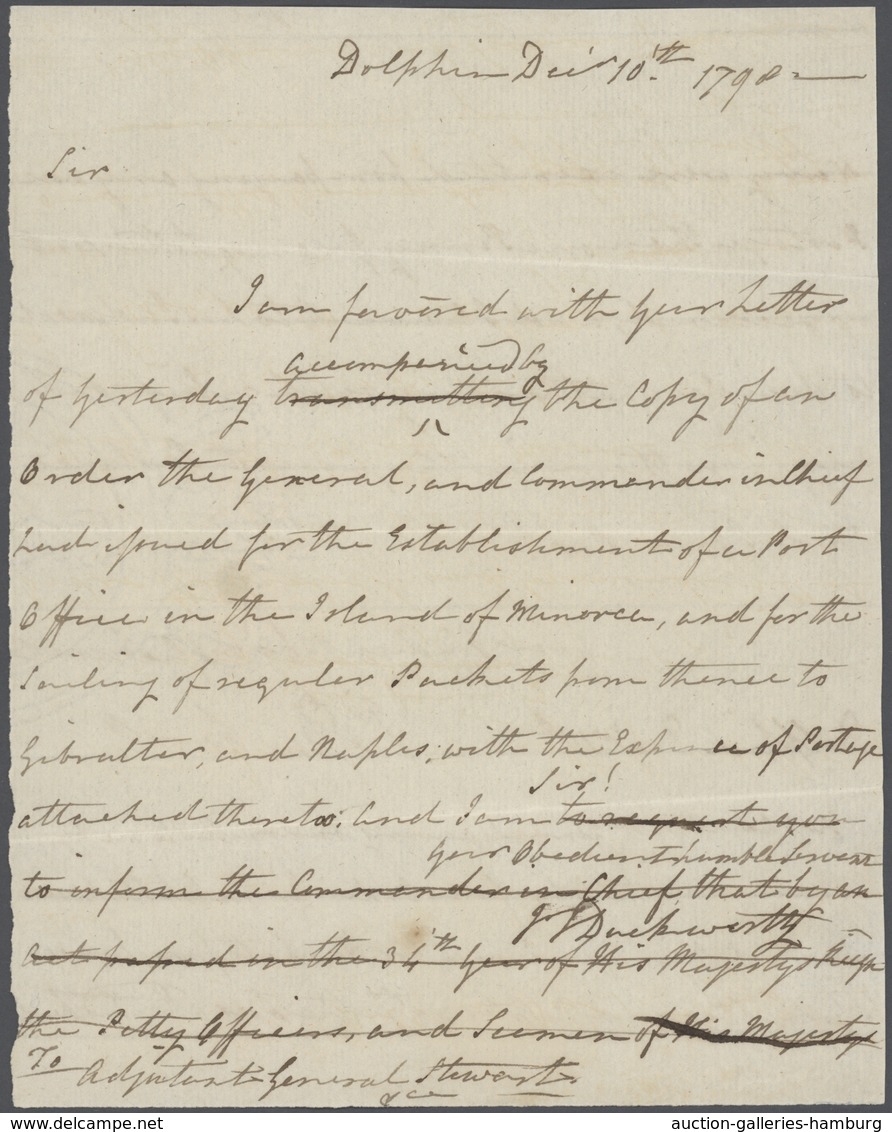 Dolphin Decr 10th 1798
Sir
I am favored with your Letter
accompanied by
of Yesterday transmitting the Copy of an
Order the General, and Commander in Chief
had issued for the Establishment of a Post
Office in the Island of Minorca, and for the
Sailing of regular Packets from thence to
Gibralter, and Naples, with the Expence of Postage
Sir!
attached thereto: And I am to request you
Your Obedient humble Servant
to inform the Commander in Chief, that by an
J T Duckworth
Act passed in the 34th Year of His Majestys Reign
the Petty Officers, and Seamen of His Majestys
To
Adjutant General Stewart
&ca
auction-galleries-hamburg